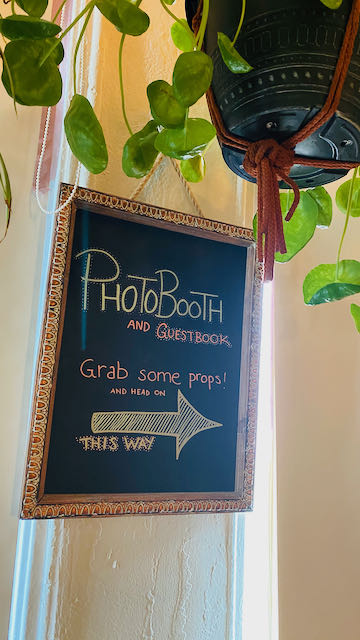 PHOTOBOOTH
AND GUESTBOOK
Grab some props!
AND HEAD ON
THIS WAY